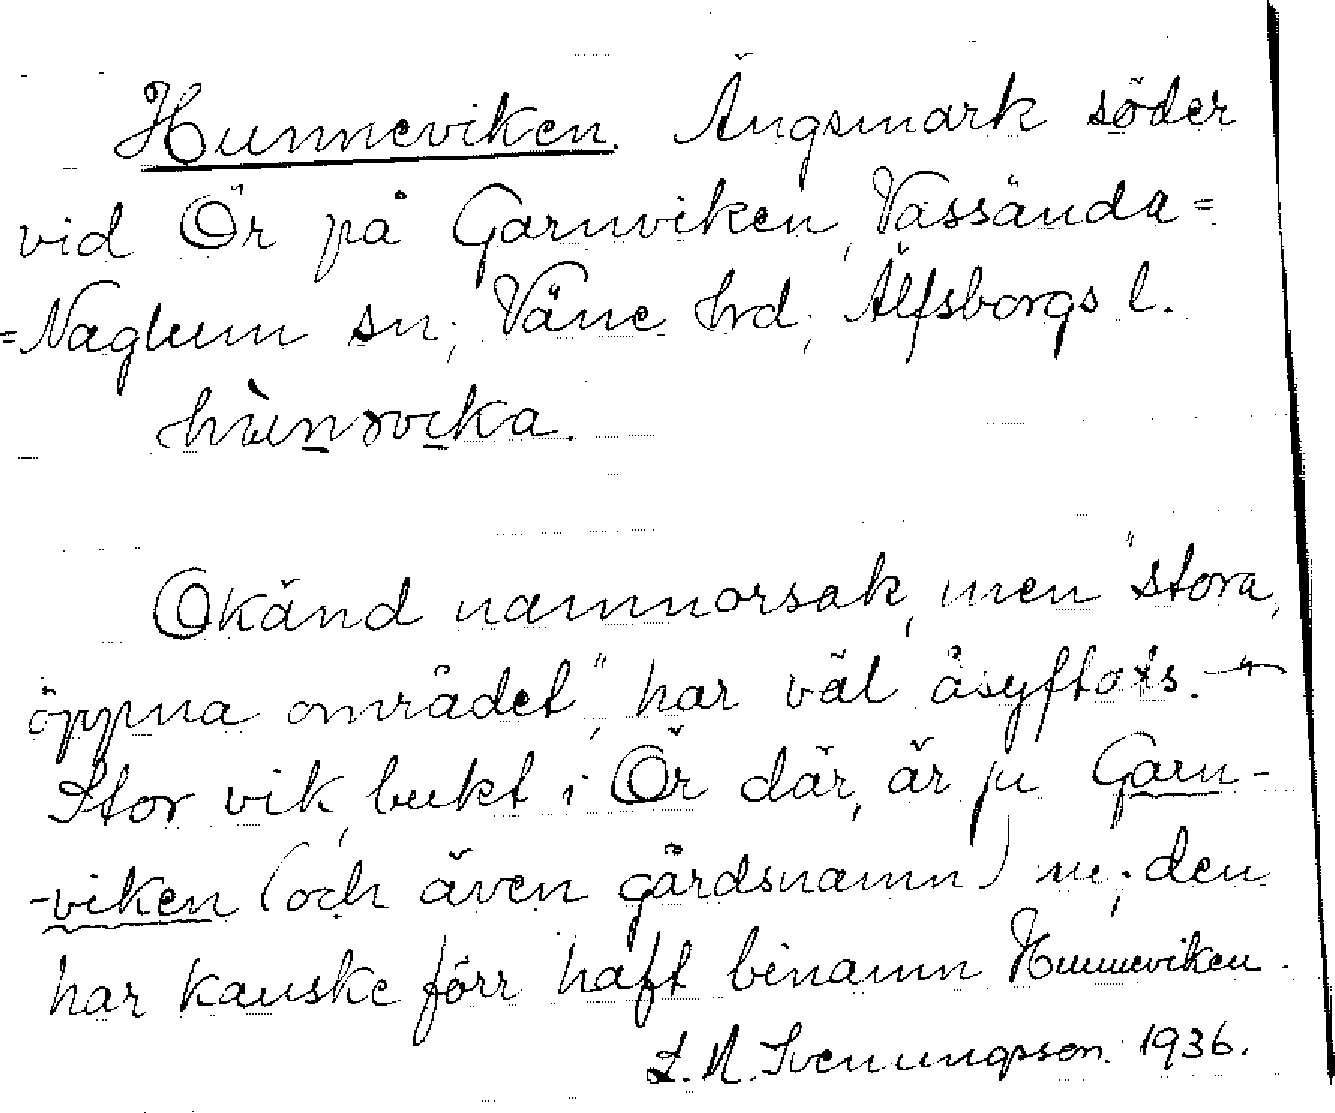 Hunneviken. Ängsmark söder
vid Ör på Garnviken, Vassända=
=Naglum sn; Väne hrd; Älfsborgs l.
Okänd namnorsak, men "stora,
öppna området", har väl åsyftats. —"—
Stor vik, bukt i Ör där, är ju Garn-
-viken (och även gårdsnamn) nu; den
har kanske förr haft binamn Hunneviken.
Svenungsson. 1936.